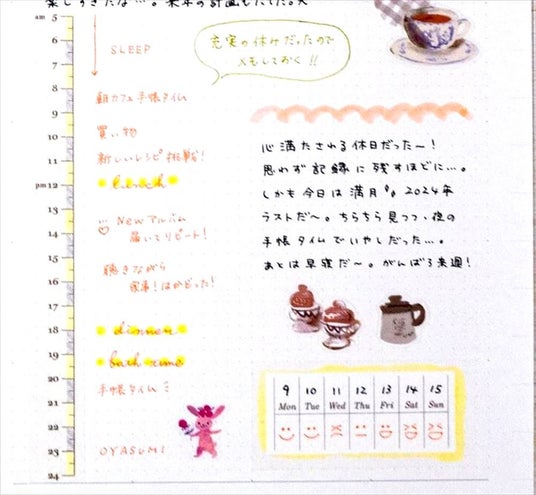 楽しすぎたな…。来年の計画もたてた。
am 5
6
7
8
9
10
11
pm 12
13
14
15
16
17
18
19
20
21
22
23
24
SLEEP
朝カフェ手帳タイム
買い物
新しいレシピ挑戦!
lunch
NEWアルバム
届いてリピート!
聴きながら
家事!はかどった!
dinner
bath time
手帳タイム
OYASUMI
充実の休みだったので
メモしておく!!
心満たされる休日だった〜!
思わず記録に残すほどに…。
しかも今日は満月 2024年
ラストだ〜。ちらちら見つつ、夜の
手帳タイムでいやしだった…。
あとは早寝だ〜。がんばろ来週!
9 10 11 12 13 14 15
Mon Tue Wed Thu Fri Sat Sun